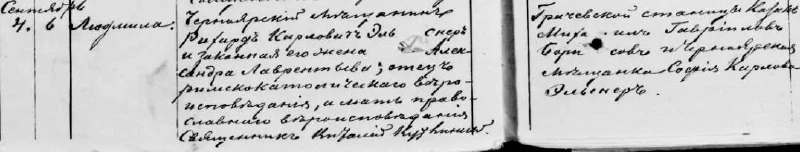 Сентябрь
4. 6 Людмила.
Черноярскій мѣщанинъ
Рихардъ Карловичъ Эльснеръ
и законная его жена Алек-
сандра Лаврентьева; отецъ
римскокатолическаго вѣро-
исповѣданія, а мать право-
славнаго вѣроисповѣданія
Священникъ Виталій
Грачевской станицы казакъ
Миха-илъ Гавріиловъ
Бори-совъ и Черноярская
мѣщанка Софія Карлова
Эльснеръ.